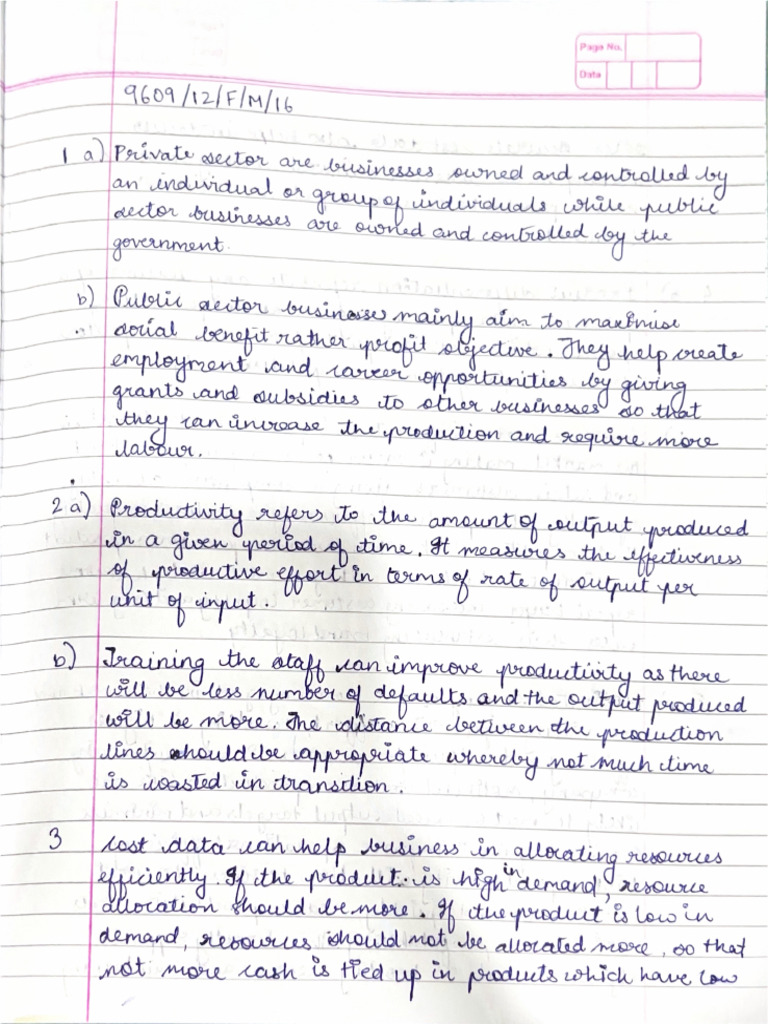 Page No.
Date
9609/12/F/M/16
1 a) Private sector are businesses owned and controlled by
an individual or group of individuals while public
sector businesses are owned and controlled by the
government.
b) Public sector businesses mainly aim to maximise
social benefit rather profit objective. They help create
employment and career opportunities by giving
grants and subsidies to other businesses so that
they can increase the production and require more
labour.
2 a) Productivity refers to the amount of output produced
in a given period of time. It measures the effectiveness
of productive effort in terms of rate of output per
unit of input.
b) Training the staff can improve productivity as there
will be less number of defaults and the output produced
will be more. The distance between the production
lines should be appropriate whereby not much time
is wasted in transition.
3 Cost data can help business in allocating resources
efficiently. If the product is high in demand, resource
allocation should be more. If the product is low in
demand, resources should not be allocated more, so that
not more cash is tied up in products which have low